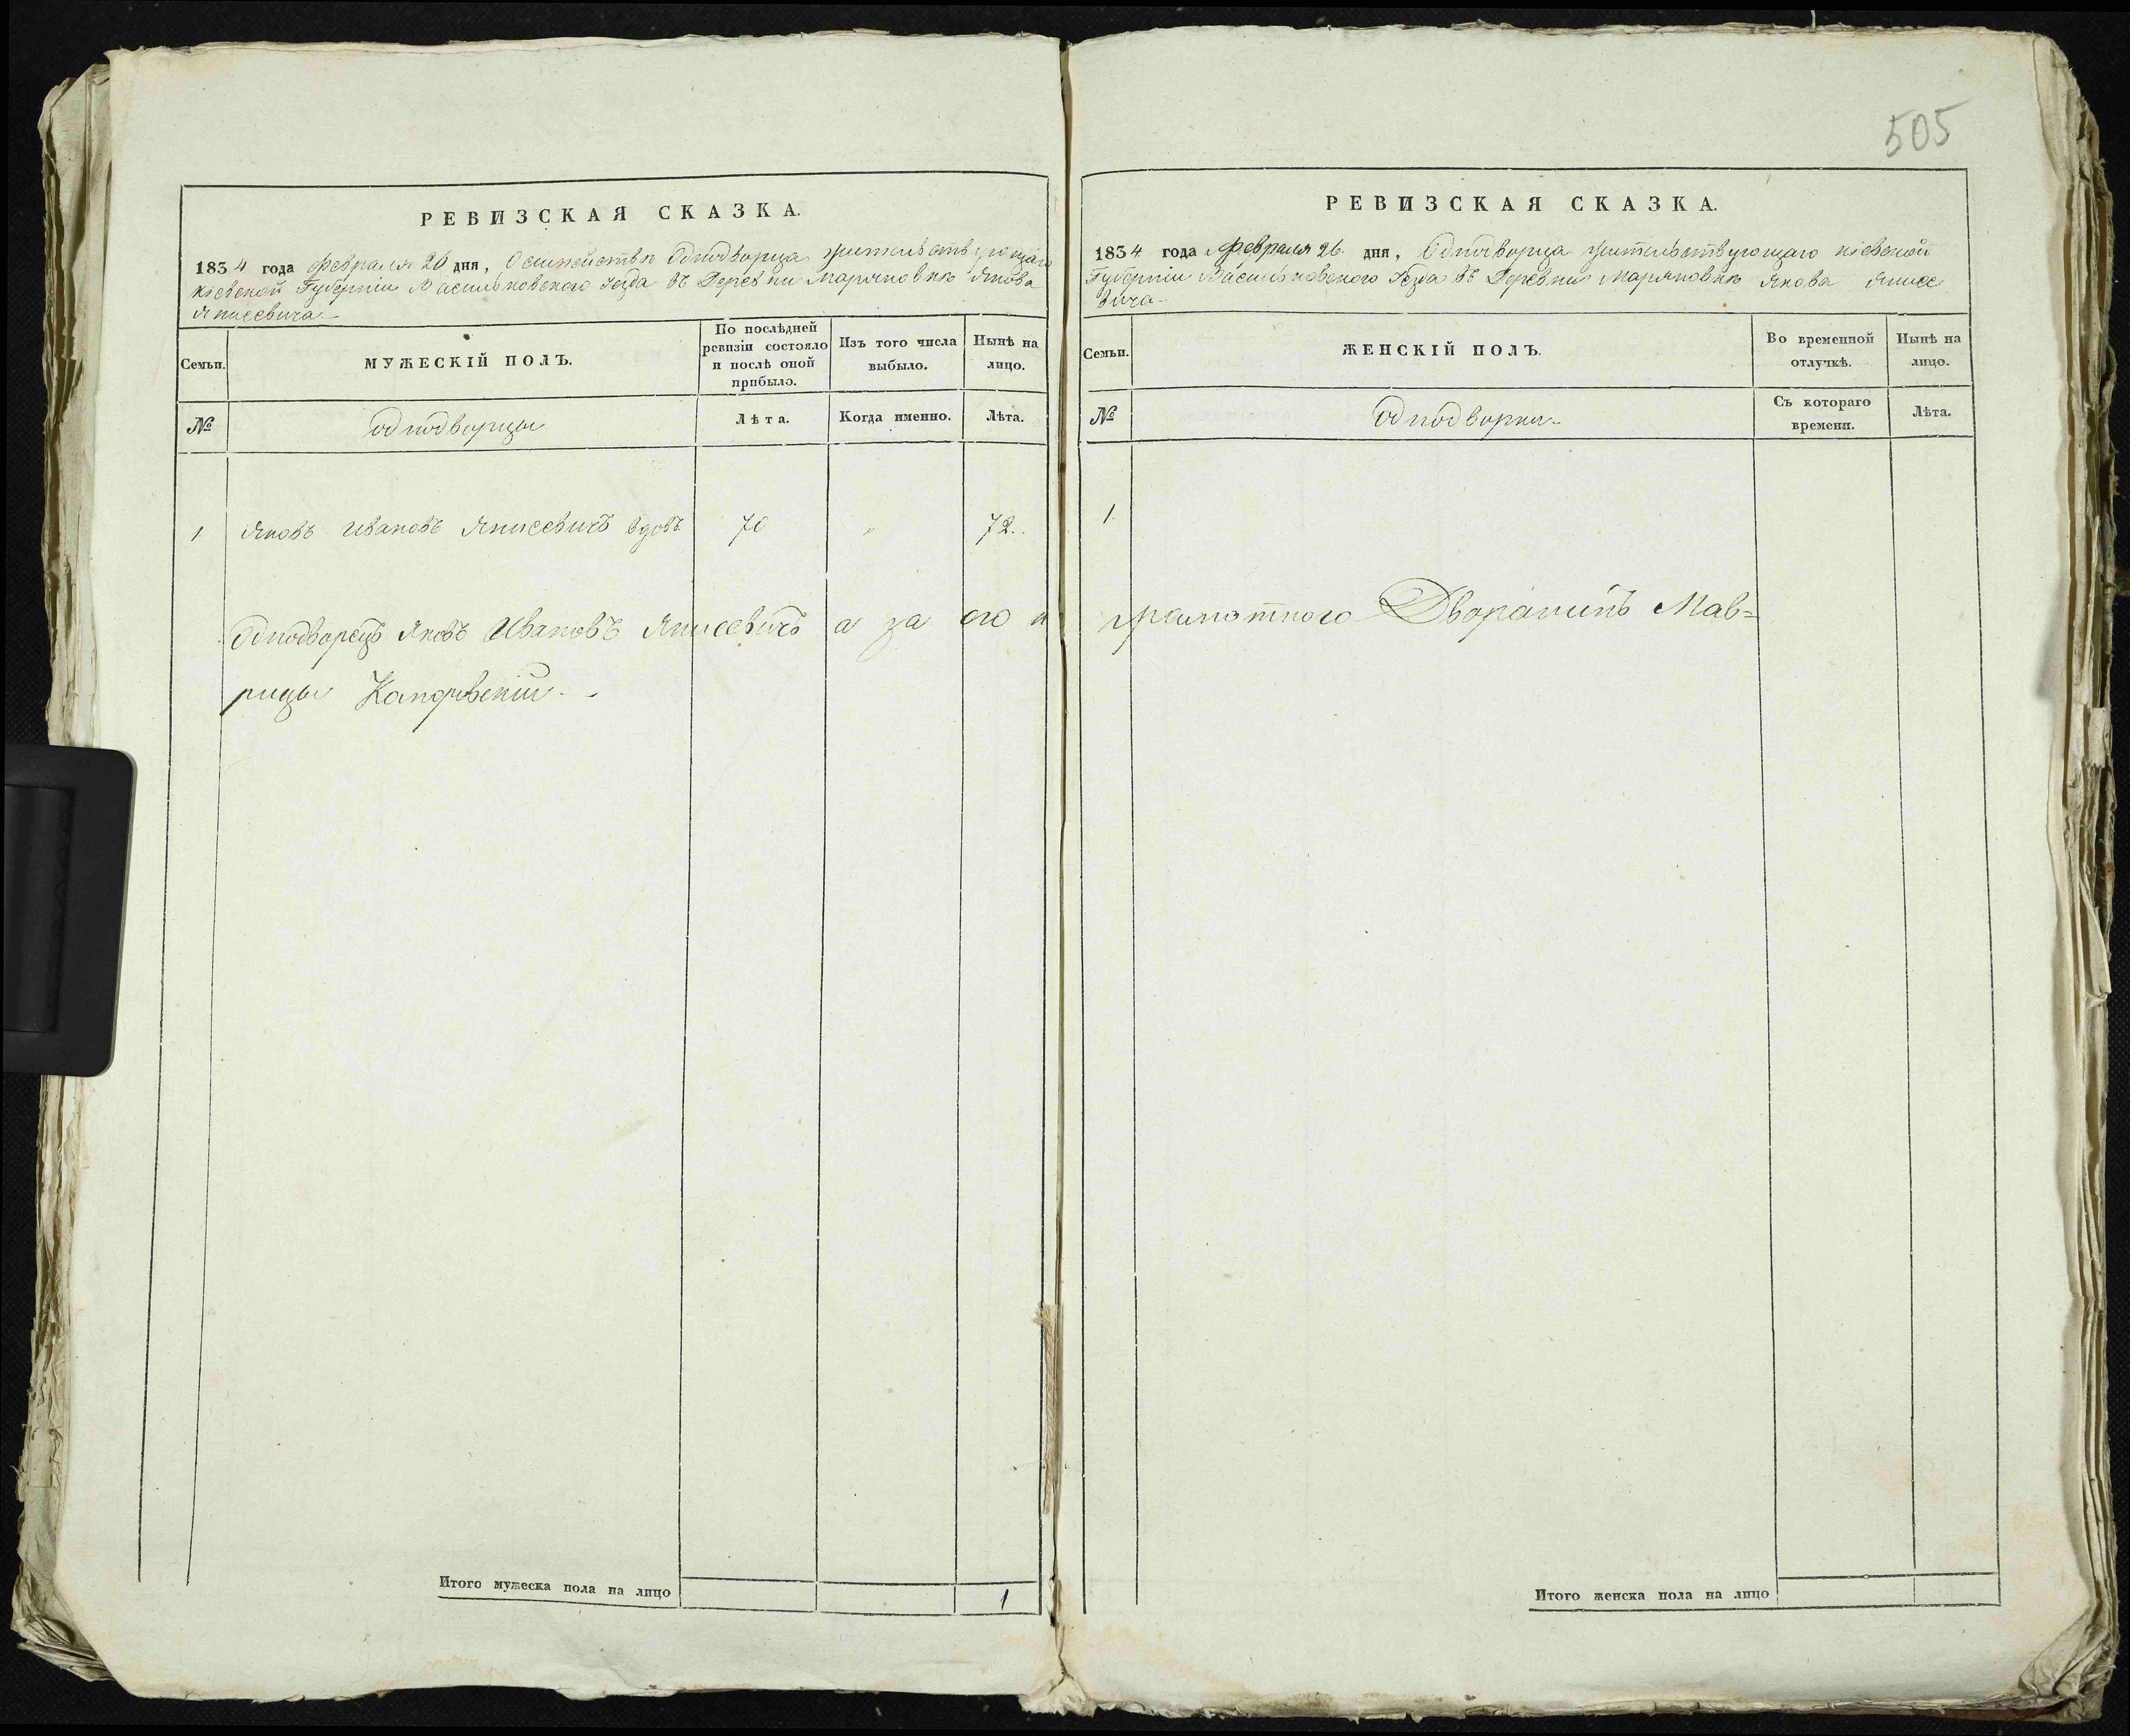 505
РЕВИЗСКАЯ СКАЗКА.
1834 года Февраля 26 дня, О семействе Однодворца жительствующаго
Кіевской Губерніи Васильковского Уезда въ Деревни Маряновке Якова
Янисевича
Семьи.
МУЖЕСКІЙ ПОЛЪ.
По послѣдней ревизіи состояло и послѣ оной прибыло.
Изъ того числа выбыло.
Нынѣ на лицо.
№
Однодворцы
Лѣта.
Когда именно.
Лѣта.
1 Яковъ Ивановъ Янисевичъ вдовъ 70 „ 72.
Однодворецъ Яковъ Ивановъ Янисевичъ а за его н
рицы
Итого мужеска пола на лицо 1
РЕВИЗСКАЯ СКАЗКА.
1834 года Февраля 26 дня, Однодворца жительствующаго Кіевской
Губерніи Васильковского Уезда въ Деревни Маряновке Якова Янисе
вича
Семьи.
ЖЕНСКІЙ ПОЛЪ.
Во временной отлучкѣ.
Нынѣ на лицо.
№
Однодворки
Съ котораго времени.
Лѣта.
1.
грамотного Дворанинъ Мав=
Итого женска пола на лицо